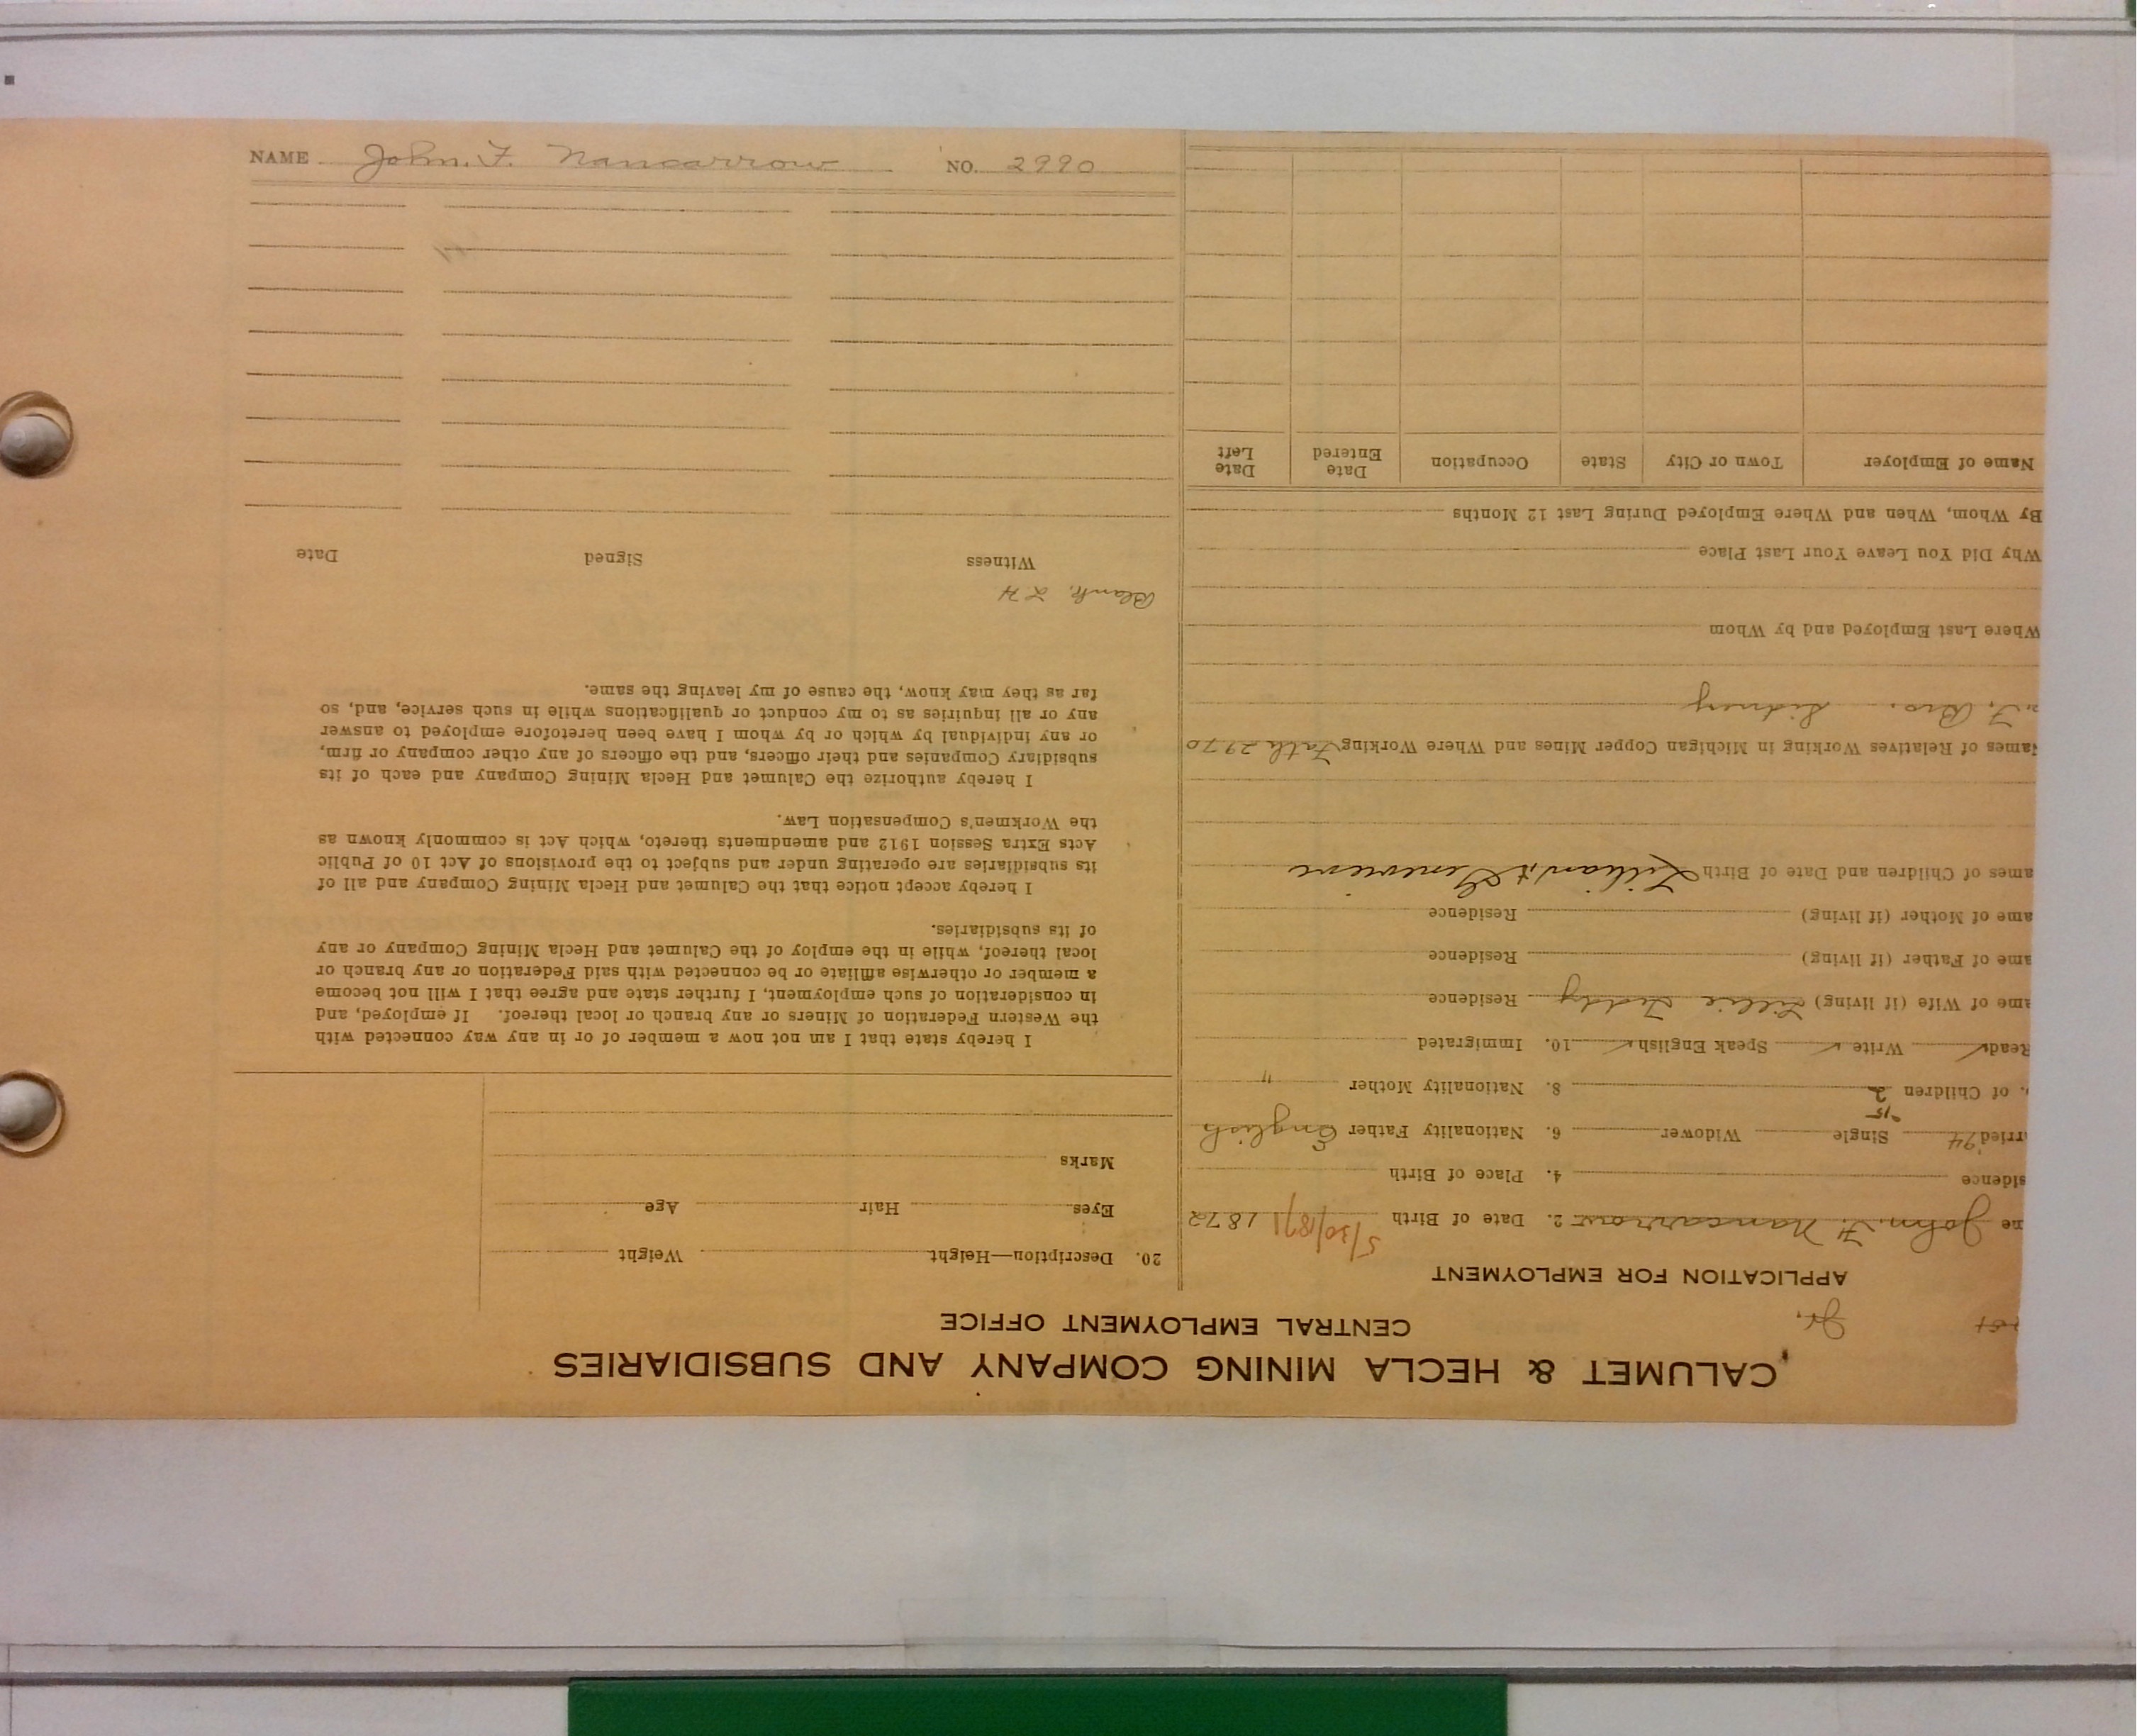 NAME John. F. Nancarrow NO. 2990
CALUMET & HECLA MINING COMPANY AND SUBSIDIARIES
CENTRAL EMPLOYMENT OFFICE
Jr.
APPLICATION FOR EMPLOYMENT
me John. F. Nancarrow 2. Date of Birth 5/30/1871 1872
sidence 4. Place of Birth
rried '94 Single Widower 6. Nationality Father English
'15
. of Children 2 8. Nationality Mother "
Read ✓ Write ✓ Speak English ✓ 10. Immigrated
ame of Wife (if living) Lillie Tiddy Residence
ame of Father (if living) Residence
ame of Mother (if living) Residence
ames of Children and Date of Birth Lillian & Genevieve
ames of Relatives Working in Michigan Copper Mines and Where Working Fath 2970
. F. Bro. Sidney
Where Last Employed and by Whom
Why Did You Leave Your Last Place
By Whom, When and Where Employed During Last 12 Months
Name of Employer Town or City State Occupation Date Entered Date Left
20. Description—Height Weight
Eyes Hair Age
Marks
I hereby state that I am not now a member of or in any way connected with
the Western Federation of Miners or any branch or local thereof. If employed, and
in consideration of such employment, I further state and agree that I will not become
a member or otherwise affiliate or be connected with said Federation or any branch or
local thereof, while in the employ of the Calumet and Hecla Mining Company or any
of its subsidiaries.
I hereby accept notice that the Calumet and Hecla Mining Company and all of
its subsidiaries are operating under and subject to the provisions of Act 10 of Public
Acts Extra Session 1912 and amendments thereto, which Act is commonly known as
the Workmen's Compensation Law.
I hereby authorize the Calumet and Hecla Mining Company and each of its
subsidiary Companies and their officers, and the officers of any other company or firm,
or any individual by which or by whom I have been heretofore employed to answer
any or all inquiries as to my conduct or qualifications while in such service, and, so
far as they may know, the cause of my leaving the same.
Blank. L H
Witness Signed Date